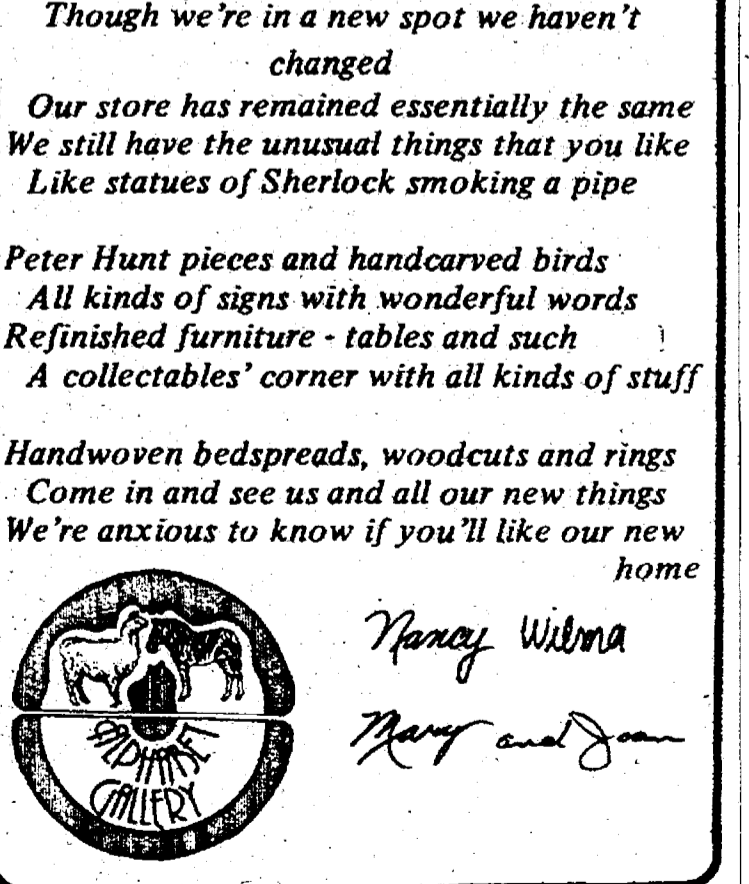 Though we're in a new spot we haven't
changed
Our store has remained essentially the same
We still have the unusual things that you like
Like statues of Sherlock smoking a pipe
Peter Hunt pieces and handcarved birds
All kinds of signs with wonderful words
Refinished furniture - tables and such
A collectables' corner with all kinds of stuff
Handwoven bedspreads, woodcuts and rings
Come in and see us and all our new things
We're anxious to know if you'll like our new
home
Nancy Wilma
Mary and Joan
ALPHABET
GALLERY